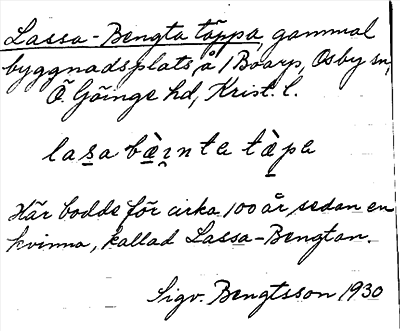 Lassa-Bengta täppa, gammal
byggnadsplats, å 1 Boarp, Osby sn,
Ö. Göinge hd, Krist. l.
lasa bæ̀ınta tæ̀pa
Här bodde för cirka 100 år sedan en
kvinna, kallad Lassa-Bengtan.
Sigv. Bengtsson 1930